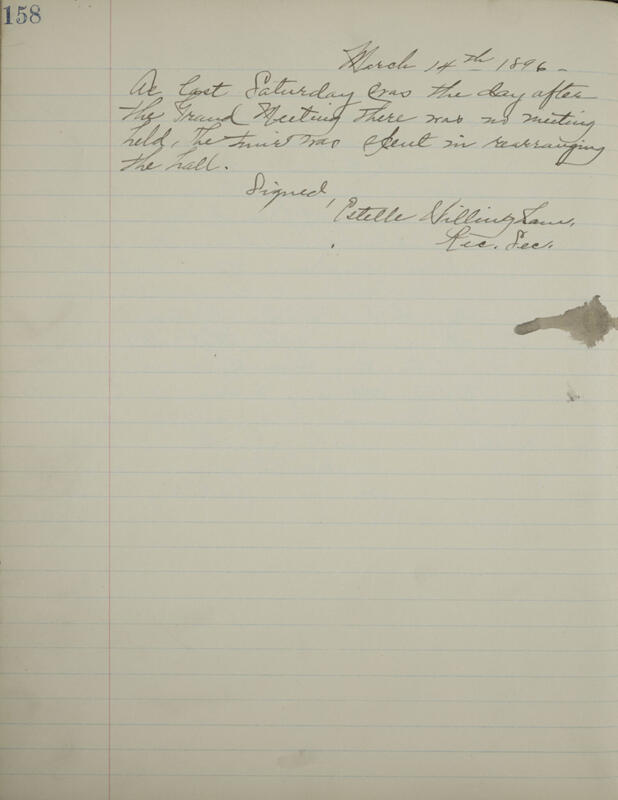 158
March 14th 1896 -
As last Saturday was the day after
the Grand Meeting there was no meeting
held, the time was spent in rearranging
the hall.
Signed,
Estelle Willingham,
Rec. Sec.